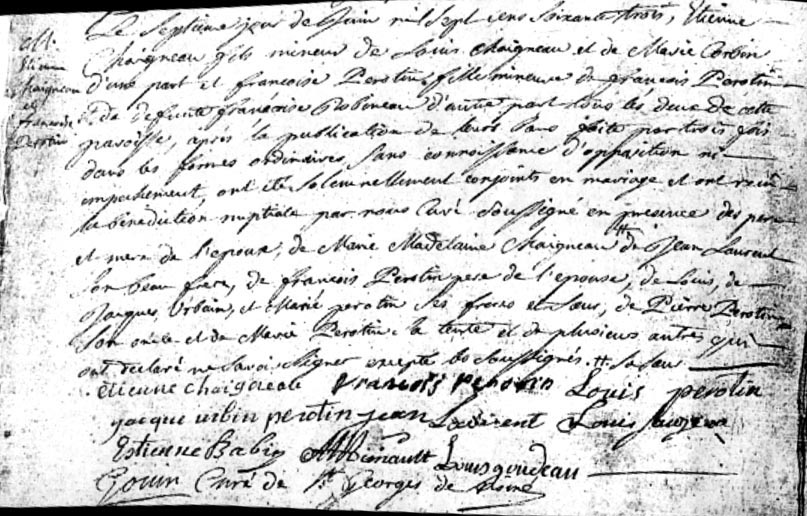 M.
Etienne
Chaigneau
et
francoise
Perotin
Le Septieme jour de Juin mil Sept cens Soixante trois, Etienne
Chaigneau fils mineur de Louis Chaigneau et de Marie Corbin
d'une part et francoise Perotin fille mineure de françois Perotin
et de defunte françoise Robineau d'autre part tous les deux de cette
paroisse, après la publication de leurs bans faite par trois fois
dans les formes ordinaires, sans connoissance d'opposition ni
empechement, ont eté Solemnellement conjoints en mariage et ont recû
la bénédiction nuptiale par nous Curé Soussigné en presence des pere
et mere de l'epoux, de Marie Madelaine Chaigneau # de Jean Laurent
Son beau frere, de françois Perotin pere de l'epouse, de Louis, de
Jacques, Urbain, et Marie perotin Ses freres et Sœur, de Pierre Perotin
Son oncle et de Marie Perotin Sa tente et de plusieurs autres qui
ont declaré ne Savoir Signer excepté les Soussignés. # Sa Sœur
etienne Chaigneau francois perotin Louis perotin
jacque urbin perotin jean Laurent Louis
Estienne Babin Louis goudeau
Curé de St Georges de